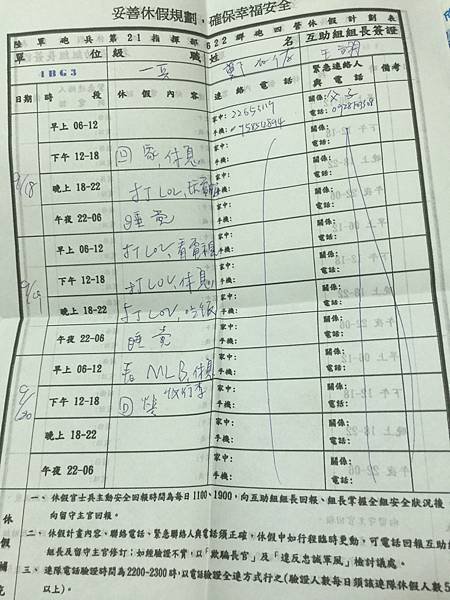 妥善休假規劃，確保幸福安全
陸軍砲兵第21指揮部622群砲四營休假計劃表
單位 級職 姓名 互助組組長簽證
1BG3 一兵
日期 時段 休假內容 連絡電話 緊急連絡人與電話 備考
9/18 早上 06-12 家中： 手機： 關係：父子 電話：
下午 12-18 回家,休息 家中： 手機： 關係： 電話：
晚上 18-22 打LOL, 家中： 手機： 關係： 電話：
午夜 22-06 睡覺 家中： 手機： 關係： 電話：
9/19 早上 06-12 打LOL,看電視 家中： 手機： 關係： 電話：
下午 12-18 打LOL,休息 家中： 手機： 關係： 電話：
晚上 18-22 打LOL,吃飯 家中： 手機： 關係： 電話：
午夜 22-06 睡覺 家中： 手機： 關係： 電話：
9/20 早上 06-12 看MLB,休息 家中： 手機： 關係： 電話：
下午 12-18 收行李 回營 家中： 手機： 關係： 電話：
晚上 18-22 家中： 手機： 關係： 電話：
午夜 22-06 家中： 手機： 關係： 電話：
休假補充
一、休假官士兵主動安全回報時間為每日1100、1900，向互助組組長回報、組長掌握全組安全狀況後
向留守主官回報。
二、休假計畫內容、聯絡電話、緊急連絡人與電話須正確，休假中如行程臨時更動，可電話回報互助
組長及留守主官修訂；如經驗證不實，以「欺騙長官」及「違反忠誠軍風」檢討議處。
三、連隊電話驗證時間為2200-2300時，以電話驗證全連方式行之(驗證人數每日須該連隊休假人數5
以上)。